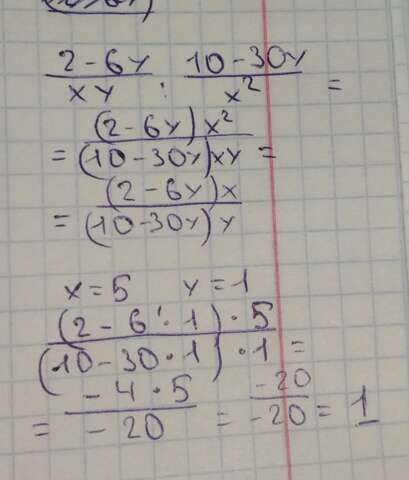 (2 - 6y)/(xy) : (10 - 30y)/(x²) =
= ((2 - 6y)x²)/((10 - 30y)xy) =
= ((2 - 6y)x)/((10 - 30y)y)
x = 5 y = 1
((2 - 6 · 1) · 5)/((10 - 30 · 1) · 1) =
= (-4 · 5)/(-20) = (-20)/(-20) = 1